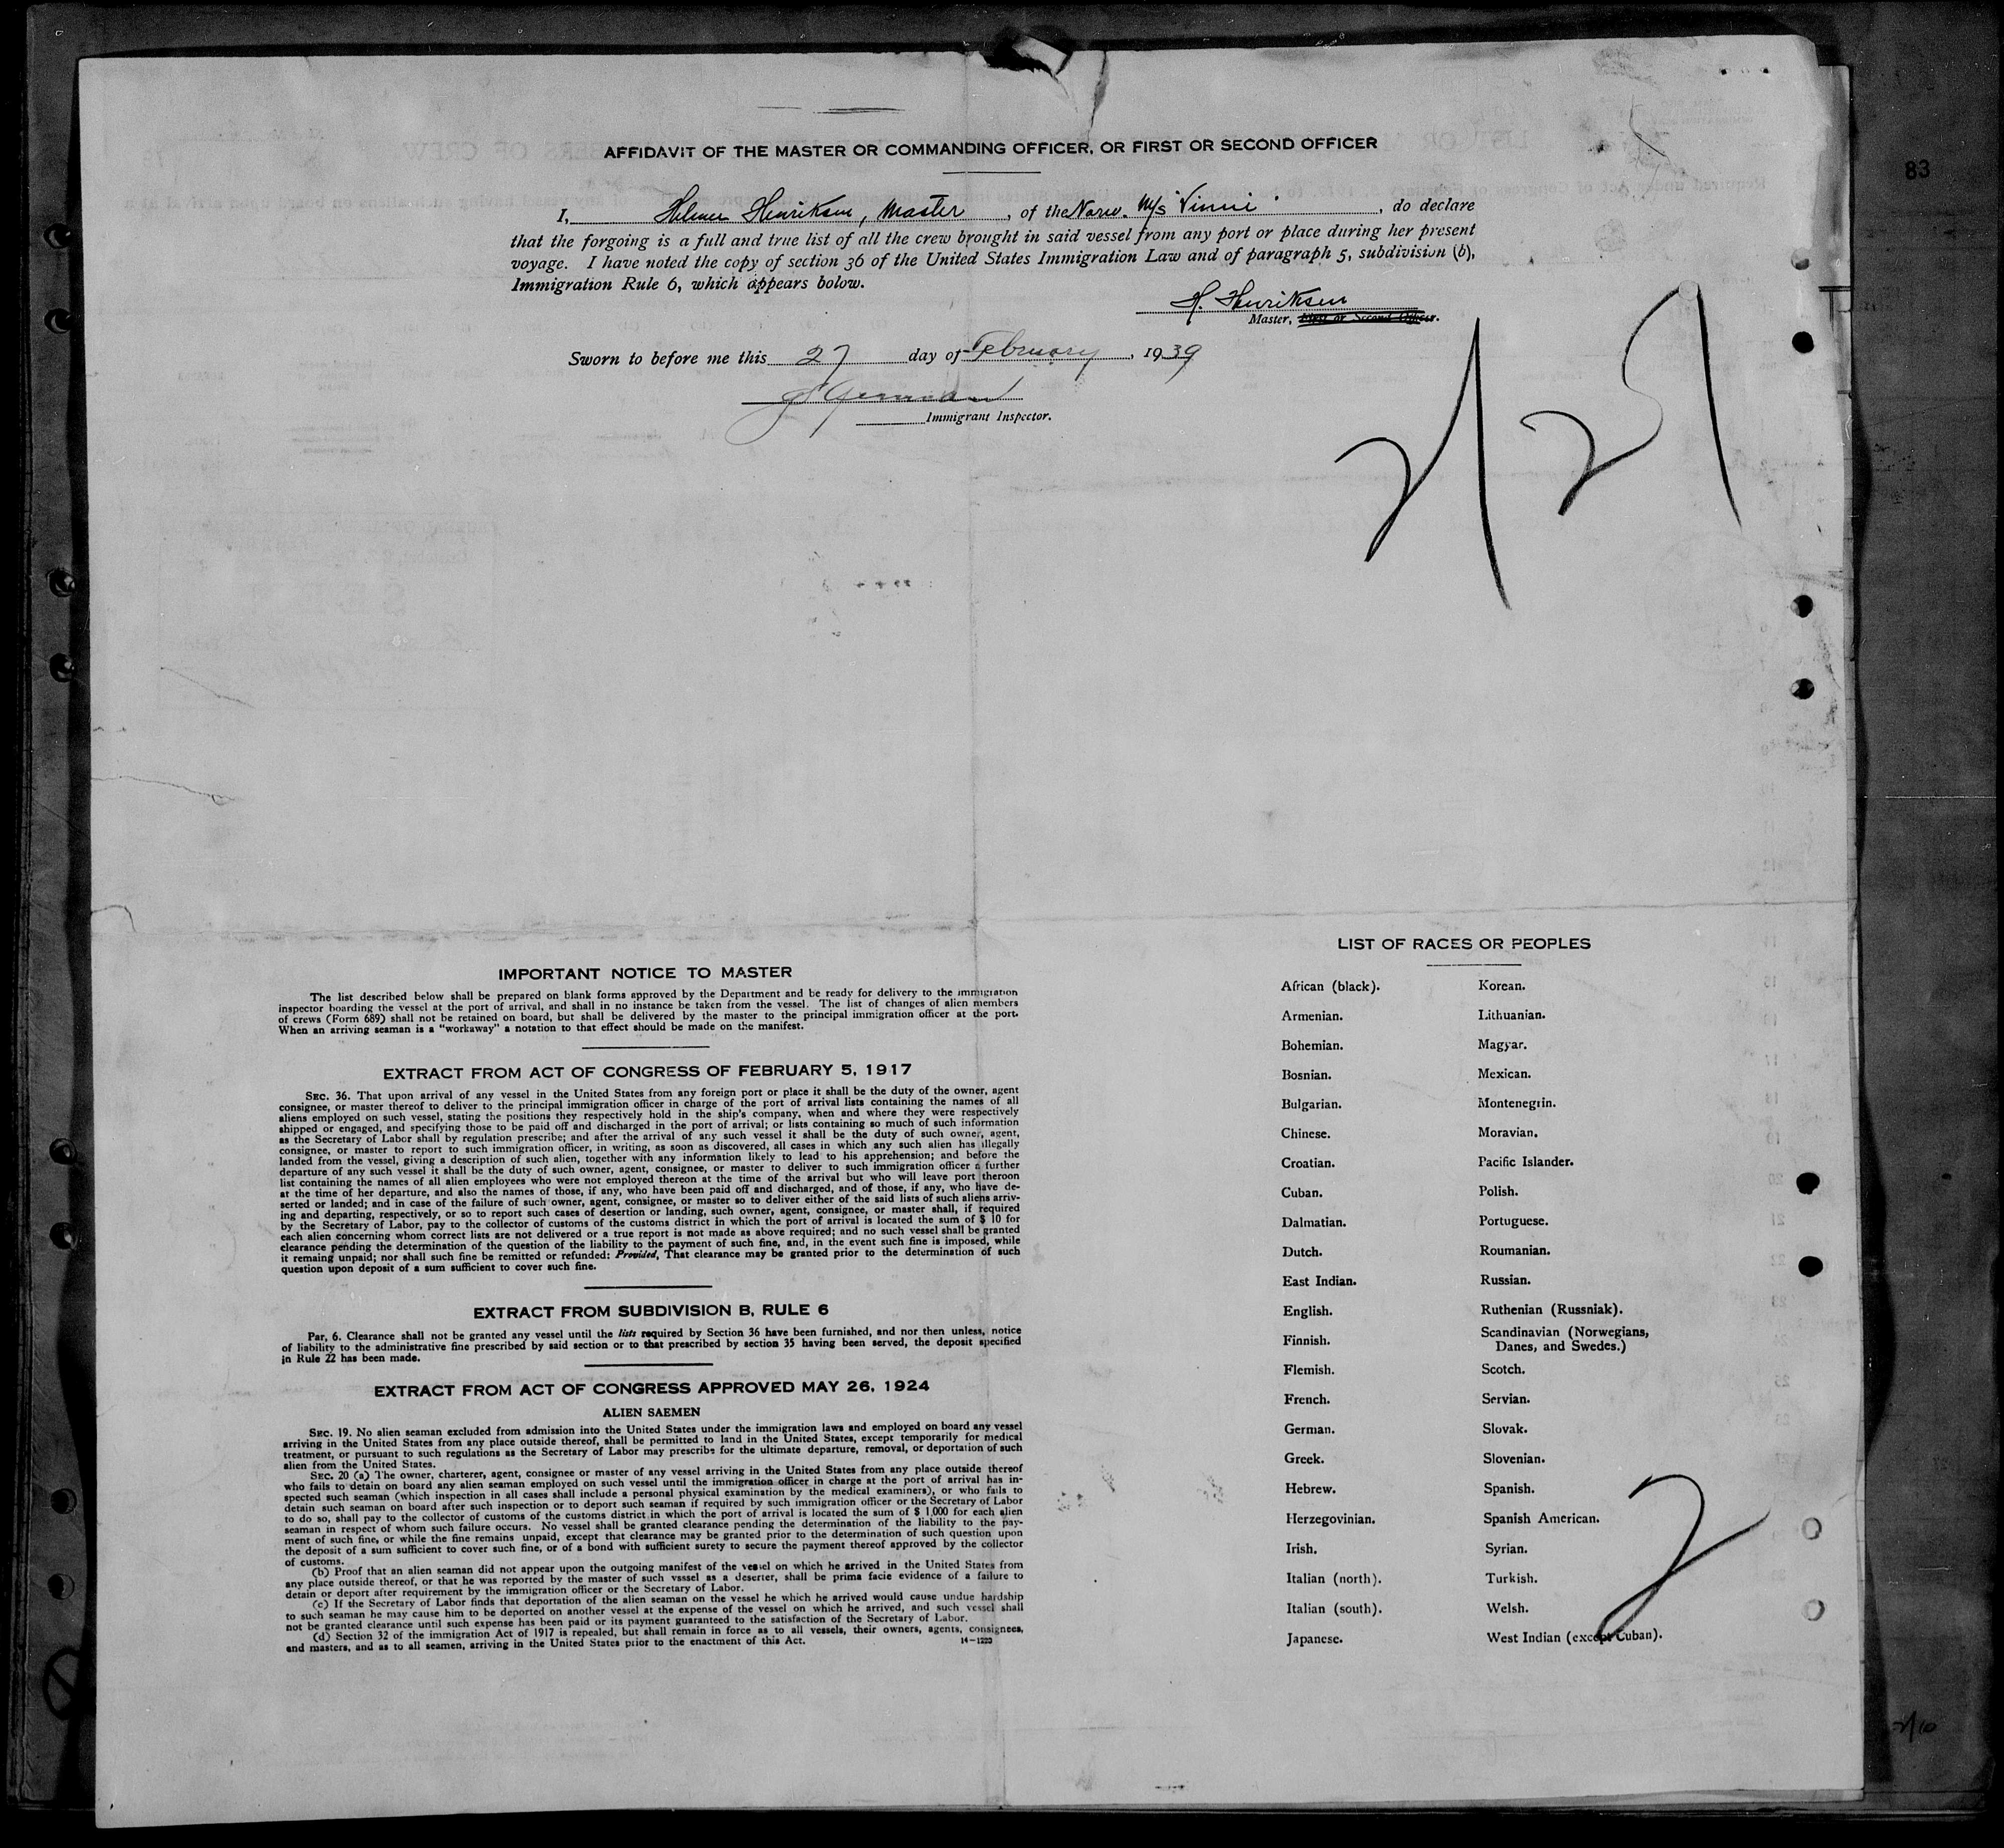 83
AFFIDAVIT OF THE MASTER OR COMMANDING OFFICER, OR FIRST OR SECOND OFFICER
I, Helmer Henriksen, Master, of the Norw. M/s "Vinni", do declare
that the forgoing is a full and true list of all the crew brought in said vessel from any port or place during her present
voyage. I have noted the copy of section 36 of the United States Immigration Law and of paragraph 5, subdivision (b),
Immigration Rule 6, which appears bolow.
H. Henriksen
Master, First or Second Officer.
Sworn to before me this 27 day of February, 1939
Immigrant Inspector.
2/27
IMPORTANT NOTICE TO MASTER
The list described below shall be prepared on blank forms approved by the Department and be ready for delivery to the immigration
inspector boarding the vessel at the port of arrival, and shall in no instance be taken from the vessel. The list of changes of alien members
of crews (Form 689) shall not be retained on board, but shall be delivered by the master to the principal immigration officer at the port.
When an arriving seaman is a "workaway" a notation to that effect should be made on the manifest.
EXTRACT FROM ACT OF CONGRESS OF FEBRUARY 5, 1917
SEC. 36. That upon arrival of any vessel in the United States from any foreign port or place it shall be the duty of the owner, agent
consignee, or master thereof to deliver to the principal immigration officer in charge of the port of arrival lists containing the names of all
aliens employed on such vessel, stating the positions they respectively hold in the ship's company, when and where they were respectively
shipped or engaged, and specifying those to be paid off and discharged in the port of arrival; or lists containing so much of such information
as the Secretary of Labor shall by regulation prescribe; and after the arrival of any such vessel it shall be the duty of such owner, agent,
consignee, or master to report to such immigration officer, in writing, as soon as discovered, all cases in which any such alien has illegally
landed from the vessel, giving a description of such alien, together with any information likely to lead to his apprehension; and before the
departure of any such vessel it shall be the duty of such owner, agent, consignee, or master to deliver to such immigration officer a further
list containing the names of all alien employees who were not employed thereon at the time of the arrival but who will leave port theroon
at the time of her departure, and also the names of those, if any, who have been paid off and discharged, and of those, if any, who have de-
serted or landed; and in case of the failure of such owner, agent, consignee, or master so to deliver either of the said lists of such aliens arriv-
ing and departing, respectively, or so to report such cases of desertion or landing, such owner, agent, consignee, or master shall, if required
by the Secretary of Labor, pay to the collector of customs of the customs district in which the port of arrival is located the sum of $ 10 for
each alien concerning whom correct lists are not delivered or a true report is not made as above required; and no such vessel shall be granted
clearance pending the determination of the question of the liability to the payment of such fine, and, in the event such fine is imposed, while
it remaing unpaid; nor shall such fine be remitted or refunded: Provided, That clearance may be granted prior to the determination of such
question upon deposit of a sum sufficient to cover such fine.
EXTRACT FROM SUBDIVISION B, RULE 6
Par, 6. Clearance shall not be granted any vessel until the lists required by Section 36 have been furnished, and nor then unless, notice
of liability to the administrative fine prescribed by said section or to that prescribed by section 35 having been served, the deposit specified
in Rule 22 has been made.
EXTRACT FROM ACT OF CONGRESS APPROVED MAY 26, 1924
ALIEN SAEMEN
SEC. 19. No alien seaman excluded from admission into the United States under the immigration laws and employed on board any vessel
arriving in the United States from any place outside thereof, shall be permitted to land in the United States, except temporarily for medical
treatment, or pursuant to such regulations as the Secretary of Labor may prescribs for the ultimate departure, removal, or deportation of such
alien from the United States.
SEC. 20 (a) The owner, charterer, agent, consignee or master of any vessel arriving in the United States from any place outside thereof
who fails to detain on board any alien seaman employed on such vessel until the immigration officer in charge at the port of arrival has in-
spected such seaman (which inspection in all cases shall include a personal physical examination by the medical examiners), or who fails to
detain such seaman on board after such inspection or to deport such seaman if required by such immigration officer or the Secretary of Labor
to do so, shall pay to the collector of customs of the customs district in which the port of arrival is located the sum of $ 1,000 for each alien
seaman in respect of whom such failure occurs. No vessel shall be granted clearance pending the determination of the liability to the pay-
ment of such fine, or while the fine remains unpaid, except that clearance may be granted prior to the determination of such question upon
the deposit of a sum sufficient to cover such fine, or of a bond with sufficient surety to secure the payment thereof approved by the collector
of customs.
(b) Proof that an alien seaman did not appear upon the outgoing manifest of the vessel on which he arrived in the United States from
any place outside thereof, or that he was reported by the master of such vsssel as a deserter, shall be prima facie evidence of a failure to
detain or deport after requirement by the immigration officer or the Secretary of Labor.
(c) If the Secretary of Labor finds that deportation of the alien seaman on the vessel he which he arrived would cause undue hardship
to such seaman he may cause him to be deported on another vessel at the expense of the vessel on which he arrived, and such vessel shall
not be granted clearance until such expense has been paid or its payment guaranteed to the satisfaction of the Secretary of Labor.
(d) Section 32 of the immigration Act of 1917 is repealed, but shall remain in force as to all vessels, their owners, agents, consignees,
and masters, and as to all seamen, arriving in the United States prior to the enactment of this Act. 14-1220
LIST OF RACES OR PEOPLES
African (black). Korean.
Armenian. Lithuanian.
Bohemian. Magyar.
Bosnian. Mexican.
Bulgarian. Montenegrin.
Chinese. Moravian.
Croatian. Pacific Islander.
Cuban. Polish.
Dalmatian. Portuguese.
Dutch. Roumanian.
East Indian. Russian.
English. Ruthenian (Russniak).
Finnish. Scandinavian (Norwegians,
Danes, and Swedes.)
Flemish. Scotch.
French. Servian.
German. Slovak.
Greek. Slovenian.
Hebrew. Spanish.
Herzegovinian. Spanish American.
Irish. Syrian.
Italian (north). Turkish.
Italian (south). Welsh.
Japanese. West Indian (except Cuban).
2
2/10